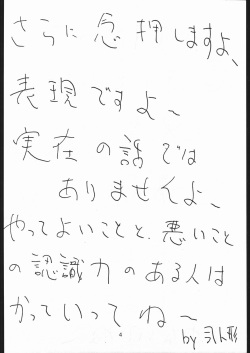 さらに念押しますよ、
表現ですよ〜
実在の話では
ありませんよ、
やってよいことと、悪いこと
の認識力のある人は
かっていってね〜
by 弐人形